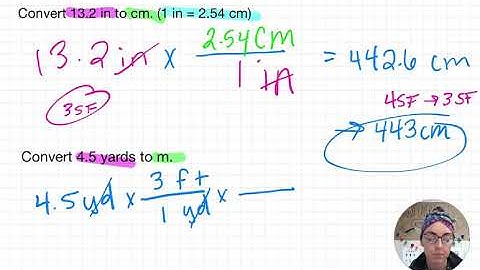 Convert 13.2 in to cm. (1 in = 2.54 cm)
13.2 in x 2.54 cm / 1 in = 442.6 cm
3SF
4SF → 3SF
→ 443 cm
Convert 4.5 yards to m.
4.5 yd x 3 ft / 1 yd x